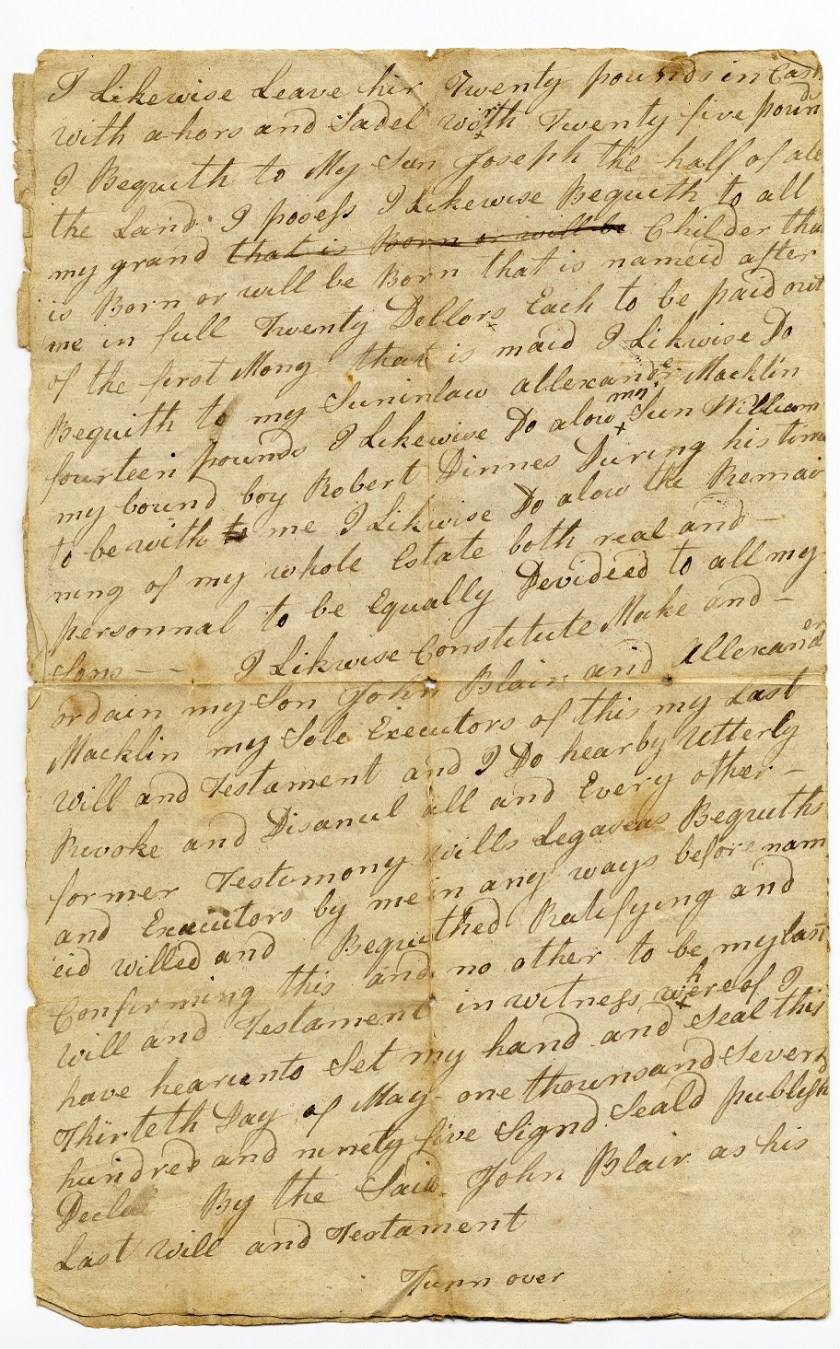 I Likewise Leave hir Twenty pounds in Cash
with a hors and Sadel worth Twenty five pound
I Bequith to My Son Joseph the half of all
the Land I posess I Likewise Bequith to all
my grand that is Born or will be Childer tha
is Born or will be Born that is nameid after
me in full Twenty Dollors Each to be paid out
of the first Mony that is maid I Likwise Do
Bequith to my Suninlaw allexander Macklin
fourteen pounds I Likewise Do alow my Sun William
my bound boy Robert Dinnes During his time
to be with to me I Likwise Do alow the Remai
ning of my whole Estate both real and -
personnal to be Equally Devideed to all my
Sons - - I Likwise Constitute Make and -
ordain my Son John Blair and Allexander
Macklin my Sole Executors of this my Last
will and Testament and I Do hearby Utterly
Revoke and Disanul all and Every other -
former Testomony wills Legaseas Bequiths
and Executors by me in any ways before nam
eid willed and Bequithed Ratifying and
Confirming this and no other to be my last
will and Testament in witness whereof I
have hearunto Set my hand and Seal this
Thirteth Day of May one thounsand Seven
hundred and ninety five Signd Seald publish
Decla By the Said John Blair as his
Last will and Testament
Turn over